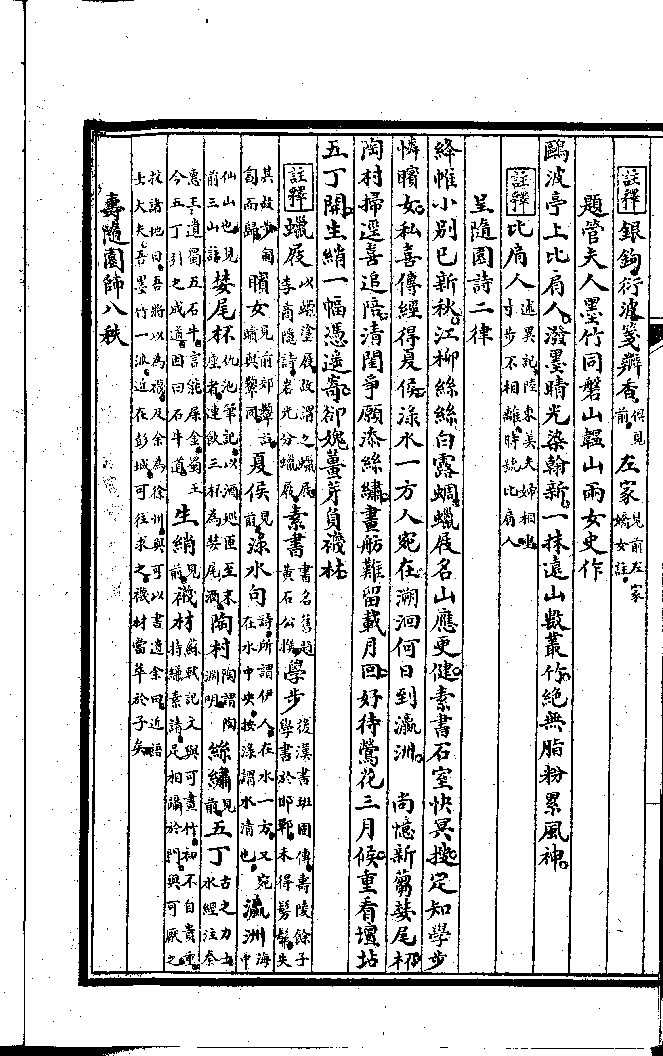 註釋 銀鉤 衍波箋 瓣香 俱見前 左家 見前左家嬌女註
題管夫人墨竹同磐山韞山兩女史作
鷗波亭上比肩人潑墨晴光染翰新一抹遠山數叢竹絕無脂粉累風神
註釋 比肩人 述異記陸東美夫婦相㐲寸步不相離時號比肩人
呈隨園詩二律
絳帷小別已新秋江柳絲絲白露蜩蠟屐名山應更健素書石室快冥搜定知學步
憐矉女私喜傳經得夏侯淥水一方人宛在溯洄何日到瀛洲 尚憶新蒭婪尾杯
陶村掃逕喜追陪清閨爭願添絲繡畫舫難留載月回好待鶯花三月候重看壇坫
五丁開生綃一幅憑遙寄卻媿薑芽負襪材
註釋 蠟屐 以蠟塗屐故謂之蠟屐李商隱詩岩光分蠟屐 素書 書名舊題黃石公撰 學步 後漢書班固傳壽陵餘子學書於邯鄲未得髣髴失
其故步匍匐而歸 矉女 見前效顰註矉與顰同 夏侯 見前 淥水句 詩所謂伊人在水一方又宛在水中央按淥謂水清也 瀛洲 海中
仙山也見前三山註 婪尾杯 仇池筆記以酒巡匝至末座者連飲三杯為婪尾酒 陶村 陶謂陶淵明 絲繡 見前 五丁 古之力士水經注秦
惠王遺蜀五石牛言能屎金蜀王令五丁引之成道因曰石牛道 生綃 見前 襪材 蘇軾記文與可畫竹初不自貴重持縑素請足相躡於門與可厭之
投諸地曰吾將以為襪及余為徐州與可以書遺余曰近語士大夫吾墨竹一派近在彭城可往求之襪材當萃於子矣
壽隨園師八秩